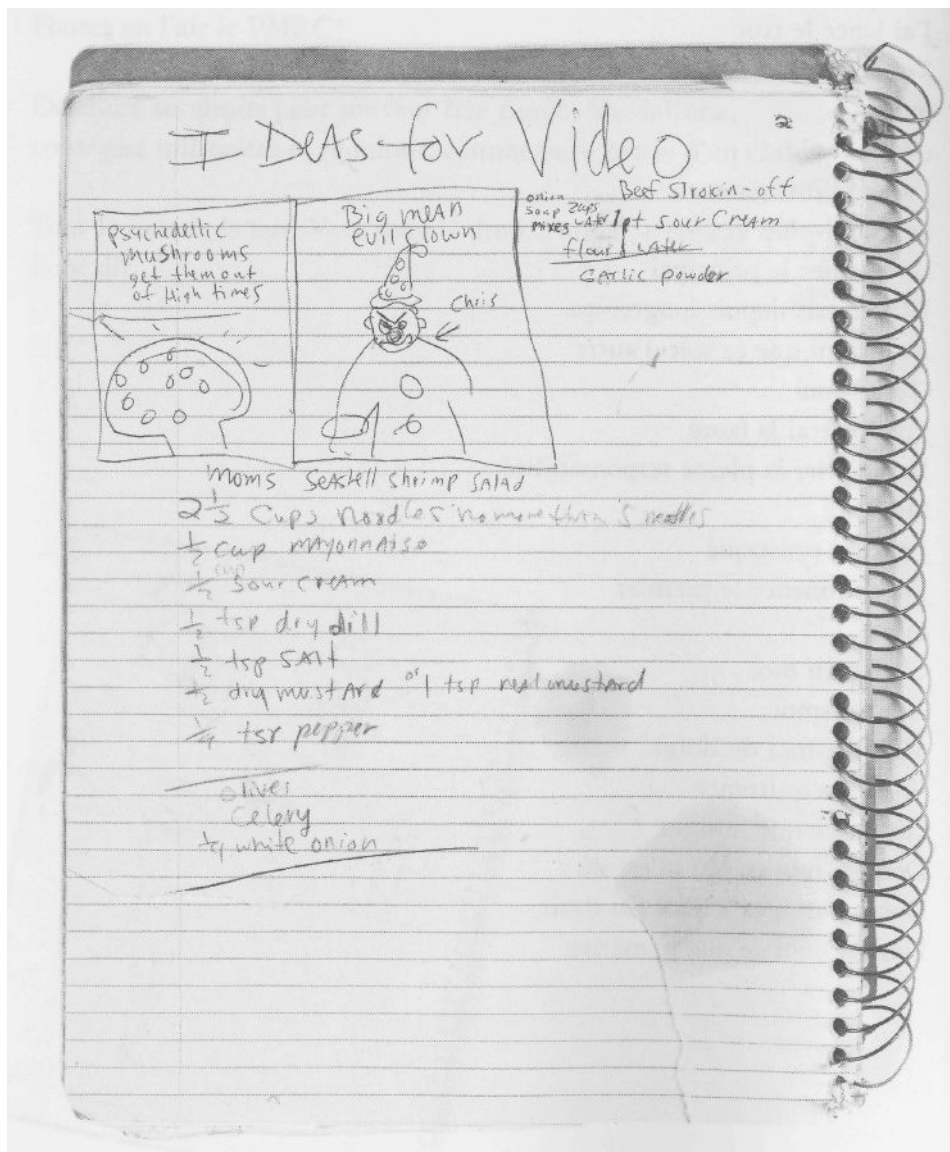 I Deas For Video
2
psychedellic
mushrooms
get them out
of High times
Big mean
evil clown
Chris
Beef Strokin-off
onion
soup
mixes
2cups
water
1pt sour cream
flour & water
Garlic powder
Moms Seashell shrimp salad
2 1/2 Cups Noodles no more than 5 noodles
1/2 cup mayonnaise
1/2 cup sour cream
1/2 tsp dry dill
1/2 tsp salt
1/2 dry mustard or 1 tsp real mustard
1/4 tsp pepper
olives
Celery
1/4 white onion